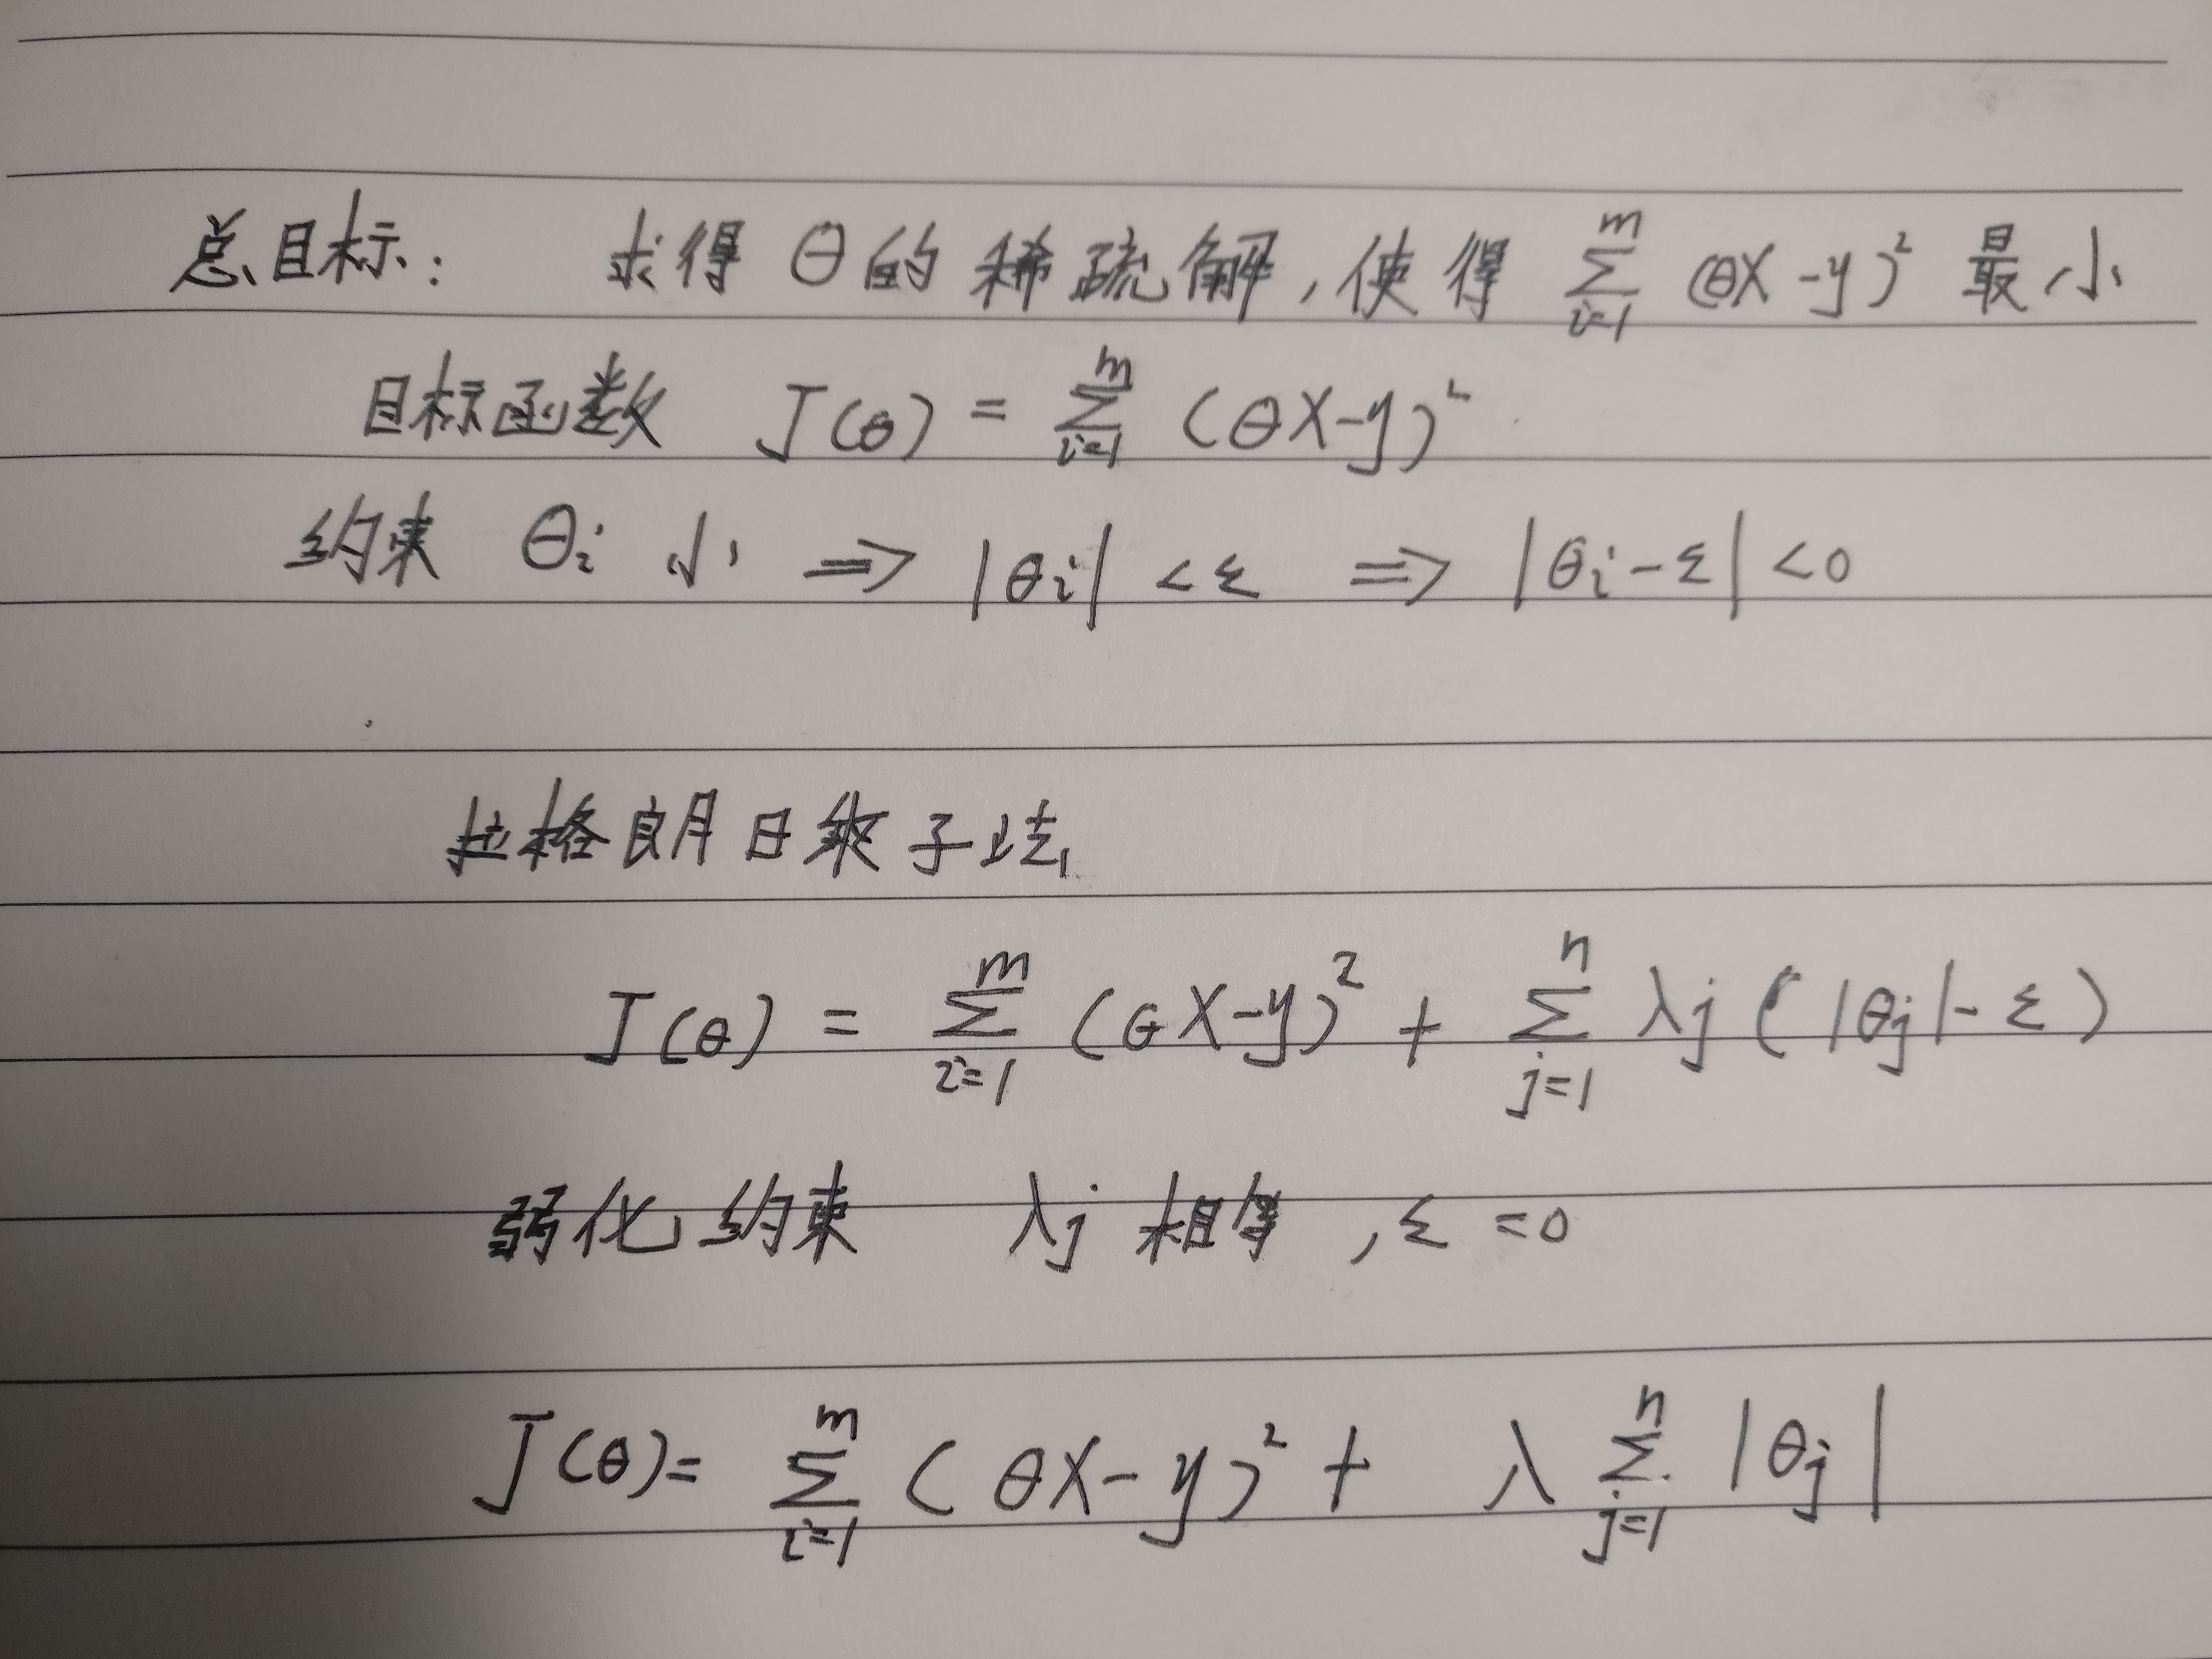 总目标: 求得 θ 的稀疏解, 使得 $\sum_{i=1}^{m} (θX-y)^2$ 最小
目标函数 $J(θ) = \sum_{i=1}^{m} (θX-y)^2$
约束 $θ_i$ 小 ⇒ $|θ_i| < ε$ ⇒ $|θ_i - ε| < 0$
拉格朗日乘子法
$J(θ) = \sum_{i=1}^{m} (θX-y)^2 + \sum_{j=1}^{n} λ_j (|θ_j| - ε)$
弱化约束 $λ_j$ 相等, $ε = 0$
$J(θ) = \sum_{i=1}^{m} (θX-y)^2 + λ \sum_{j=1}^{n} |θ_j|$